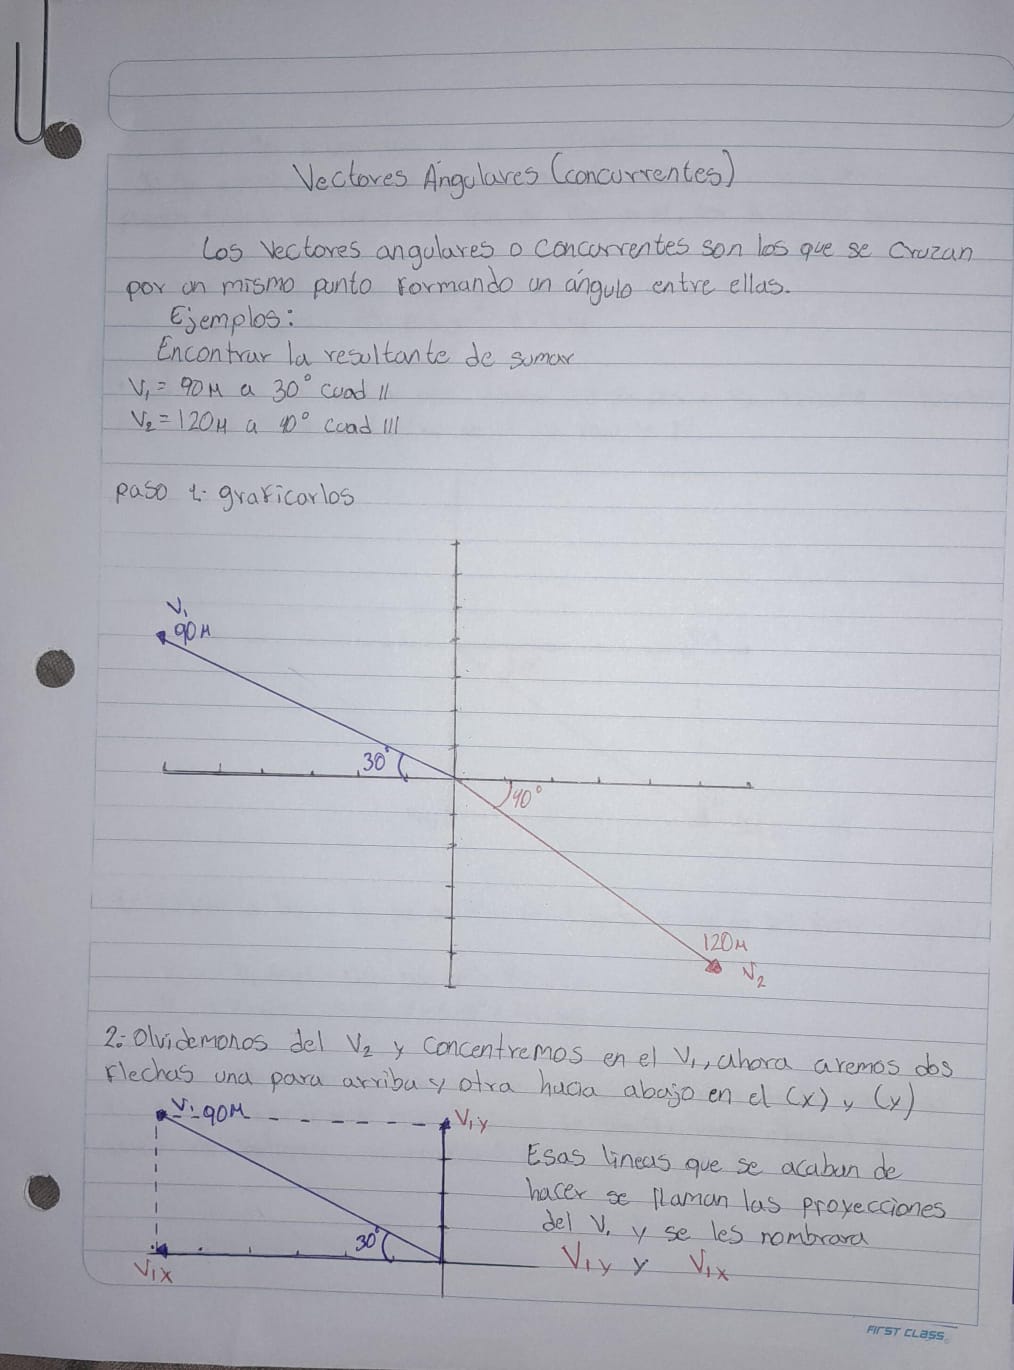 Vectores Angulares (concurrentes)
Los Vectores angulares o concurrentes son los que se cruzan
por un mismo punto formando un ángulo entre ellas.
Ejemplos:
Encontrar la resultante de sumar
V₁ = 90M a 30° cuad II
V₂ = 120M a 40° cuad III
paso 1: graficarlos
V₁
90M
30°
40°
120M
V₂
2: Olvidemonos del V₂ y concentremos en el V₁, ahora aremos dos
flechas una para arriba y otra hacia abajo en el (x) y (y)
V₁ 90M
V₁y
30°
V₁x
Esas lineas que se acaban de
hacer se llaman las proyecciones
del V₁ y se les nombrara
V₁y y V₁x
FIRST CLASS